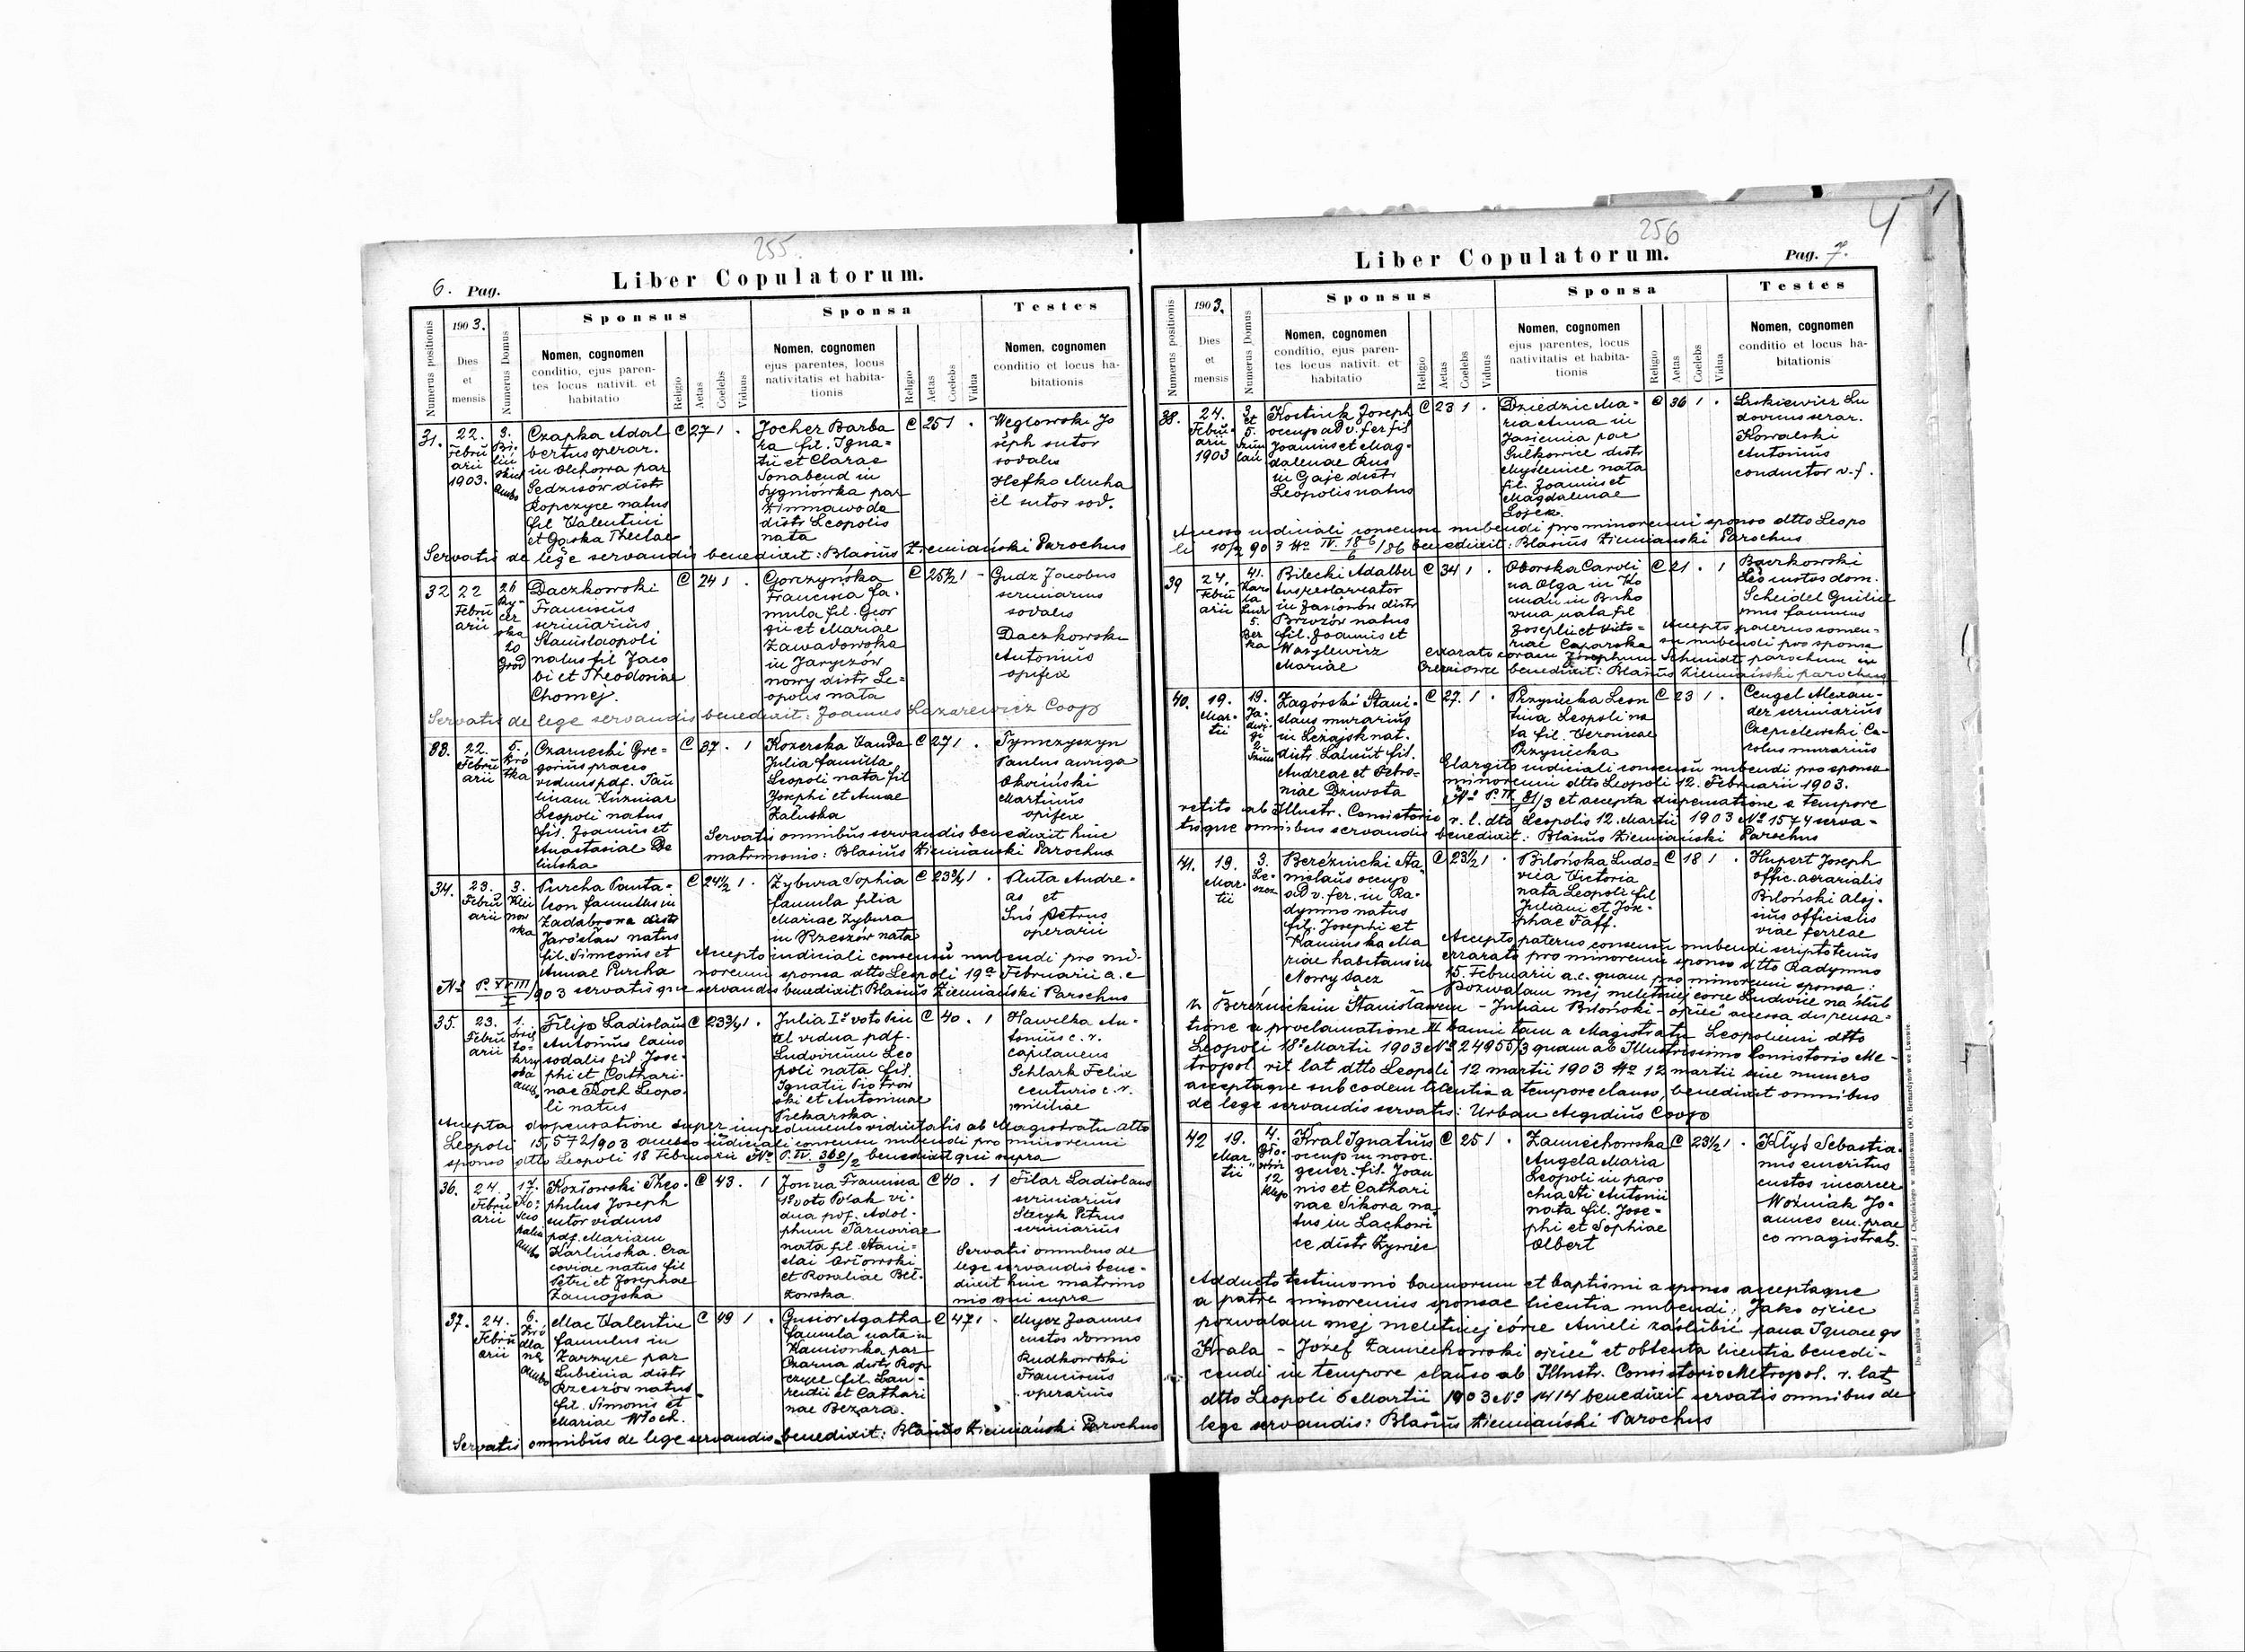 255.
6. Pag.
Liber Copulatorum.
Numerus positionis
1903.
Dies
et
mensis
Numerus Domus
Sponsus
Nomen, cognomen
conditio, ejus paren-
tes locus nativit. et
habitatio
Religio
Aetas
Coelebs
Viduus
Sponsa
Nomen, cognomen
ejus parentes, locus
nativitatis et habita-
tionis
Religio
Aetas
Coelebs
Vidua
Testes
Nomen, cognomen
conditio et locus ha-
bitationis
31.
22.
Febru
arii
1903.
3.
ambo
Czapka Adal
bertus operar.
in Olchowa par
Sędzisów distr
Ropczyce natus
fil Valentini
et Gąska Theclae
C 27 1 .
Jocher Barba
ra fil. Igna=
tii et Clarae
Sonabend in
Sygniówka par
Zimnawoda
distr Leopolis
nata
C 25 1 .
Węglowski Jo
seph sutor
sodalis
Hefko Micha
ël sutor sod.
Servatis de lege servandis benedixit: Blasius Ziemiański Parochus
32
22
Febru
arii
26
20
Daczkowski
Franciscus
scriniarius
Stanislaopoli
natus fil Jaco
bi et Theodoriae
Chomej.
C 24 1 .
Gorczyńska
Francisca fa-
mula fil. Geor
gii et Mariae
Zawadowska
in Jaryczów
nowy distr Le=
opolis nata
C 25½ 1 -
Gudz Jacobus
scriniarius
sodalis
Daczkowski
Antonius
opifex
Servatis de lege servandis benedixit: Joannes Lazarewicz Coop
33.
22.
Febru
arii
5.
Kró
tka
Czarnecki Gre=
gorius praeco
viduus pdf. Pau
linam Kuzniar
Leopoli natus
fil. Joannis et
Anastasiae De
lińska
C 37 . 1
Kozerska Vanda
Julia famula
Leopoli nata fil
Josephi et Annae
Załuska
C 27 1 .
Tymczyszyn
Paulus auriga
Okwiński
Martinus
opifex
Servatis omnibus servandis benedixit huic
matrimonio: Blasius Ziemiański Parochus
34.
23.
Febru
arii
3.
Klei
now
ska
Purcha Panta=
leon famulus in
Zadabrowa distr
Jarosław natus
fil. Simeonis et
Annae Purcha
C 24½ 1 .
Zybura Sophia
famula filia
Mariae Zybura
in Rzeszów nata
C 23¾ 1 .
Pluta Andre=
as et
Luś Petrus
operarii
Accepto iudiciali consensu nubendi pro mi-
norenni sponsa dtto Leopoli 19a Februarii a. c
No P. XVIII/I 903 servatisque servandis benedixit: Blasius Ziemiański Parochus
35.
23.
Febru
arii
1.
Filip Ladislaus
Antonius lanio
sodalis fil Jose-
phi et Cathari-
nae Koch Leopo-
li natus
C 23¾ 1 .
Julia Io voto Kin
el vidua pdf.
Ludovicum Leo
poli nata fil.
Ignatii Piotrow
ski et Antoninae
Piekarska.
C 40. . 1
Hawelka An-
tonius c. r.
capitaneus
Schlark Felix
centurio c. r.
militiae
Accepta dispensatione super impedimento viduitatis ab Magistratu dtto
Leopoli 15,572/903 accesso iudiciali consensu nubendi pro minorenni
sponso dtto Leopoli 18 Februarii No P. IV. 360/3/2 benedixit qui supra
36.
24.
Febru
arii
17.
ambo
Kozłowski Theo-
philus Joseph
sutor viduus
pdf. Mariam
Karlińska. Cra
coviae natus fil
Petri et Josephae
Zamojska
C 43. . 1
Jonna Francisca
1o voto Polak vi-
dua pdf. Adol-
phum Tarnoviae
nata fil Stani=
slai Orłowski
et Rosaliae Beł-
żowska
C 40. . 1
Filar Ladislaus
scriniarius
Stecyk Petrus
scriniarius
Servatis omnibus de
lege servandis bene-
dixit huic matrimo
nio qui supra
37.
24.
Febru
arii
6.
ambo
Mac Valentin
famulus in
Zarzyce par
Lubenia distr
Rzeszów natus
fil. Simonis et
Mariae Włoch.
C 49 1 .
Gusior Agatha
famula nata in
Kamionka par
Czarna distr Rop
czyce fil. Lau-
rentii et Cathari
nae Bezara.
C 47 1 .
Mycz Joannes
custos domus
Rudkowski
Franciscus
operarius
Servatis omnibus de lege servandis benedixit: Blasius Ziemiański Parochus
256
4
Liber Copulatorum.
Pag. 7.
Numerus positionis
1903.
Dies
et
mensis
Numerus Domus
Sponsus
Nomen, cognomen
conditio, ejus paren-
tes locus nativit. et
habitatio
Religio
Aetas
Coelebs
Viduus
Sponsa
Nomen, cognomen
ejus parentes, locus
nativitatis et habita-
tionis
Religio
Aetas
Coelebs
Vidua
Testes
Nomen, cognomen
conditio et locus ha-
bitationis
38.
24.
Febru-
arii
1903
3.
et
5.
Kostiuk Joseph
occup ad v. fer fil
Joannis et Mag-
dalenae Kus
in Gaje distr
Leopolis natus
C 23 1 .
Dziedzic Ma-
ria Anna in
Jasienica par
Sułkowice distr
Myślenice nata
fil. Joannis et
Magdalenae
Łojek.
C 36 1 .
Liskiewicz Lu
dovicus serar.
Kowalski
Antonius
conductor v. f.
Accesso iudiciali consensu nubendi pro minorenni sponso dtto Leopo
li 10/2 903 No IV. 186/6 /86 benedixit: Blasius Ziemianski Parochus
39
24.
Febru
arii
41.
5.
Bilecki Adalber
tus restaurator
in Jasionów distr
Brzozów natus
fil. Joannis et
Wasylewicz
Mariae
C 34 1 .
Oborska Caroli
na Olga in Ko
cman in Buko
wina nata fil
Josephi et Victo=
riae Caparska
C 21 . 1
Baczkowski
Leo custos dom.
Scheidel Guiliel
mus famulus
Accepto paterno consen-
su nubendi pro sponsa
exarato coram Josephum Schmidt parochum in
Czerniowce benedixit: Blasius Ziemiański parochus
40.
19.
Mar-
tii
19.
Ja-
dwi-
gi
2
Zagórski Stani-
slaus murarius
in Leżajsk nat.
distr. Łańcut fil.
Andreae et Petro=
niae Dziwota
C 27. 1 .
Przysiecka Leon
tina Leopoli na
ta fil. Veronicae
Przysiecka
C 23 1 .
Cengel Alexan-
der scriniarius
Czepielewski Ca-
rolus murarius
Elargito iudiciali consensu nubendi pro sponsa
minorenni dtto Leopoli 12. Februarii 1903.
No P. IV. 81/3 et accepta dispensatione a tempore
vetito ab Illustr. Consistorio r. l. dto Leopolis 12. Martii 1903 No 1574 serva-
tisque omnibus servandis benedixit: Blasius Ziemiański Parochus
41.
19.
Mar-
tii
3.
Bereżnicki Sta
nislaus occup
ad v. fer. in Ra-
dymno natus
fil. Josephi et
Kaminska Ma
riae habitans in
Nowy Sacz
C 23½ 1 .
Bilońska Ludo-
vica Victoria
nata Leopoli fil
Juliani et Jose-
phae Faff.
C 18 1 .
Hupert Joseph
offic. aerarialis
Biloński Aloj-
sius officialis
viae ferreae
Accepto paterno consensu nubendi scriptotenus
exarato pro minorenni sponso dtto Radymno
15. Februarii a. c. quam pro minorenni sponsa:
Pozwalam mej meletniej córce Ludwice na ślub
z Bereżnickim Stanisławem - Julian Biloński - ojciec accessa dispensa=
tione a proclamatione III banni tam a Magistratu Leopoliensi dtto
Leopoli 18o Martii 1903 No 24955/3 quam ab Illustrissimo Consistorio Me-
tropol. rit lat dtto Leopoli 12 martii 1903 No 12 martii sine numero
acceptaque sub eodem licentia a tempore clauso, benedixit omnibus
de lege servandis servatis: Urban Aegidius Coop
42
19.
Mar
tii
4.
12
Kral Ignatius
occup in nosoc.
gener. fil. Joan
nis et Cathari
nae Sikora na
tus in Lachowi
ce distr Żywiec
C 25 1 .
Zaunechowska
Angela Maria
Leopoli in paro
chia Sti Antonii
nata fil. Jose-
phi et Sophiae
Olbert
C 23½ 1 .
Kłyś Sebastia
nus emeritus
custos incarcer
Woźniak Jo-
annes em. prae
co magistrat.
Adducto testimonio bannorum et baptismi a sponso acceptaque
a patre minorennis sponsae licentia nubendi: Jako ojciec
pozwalam mej meletniej córce Anieli zaślubić pana Ignacego
Krala - Józef Zaunechowski ojciec et obtenta licentia benedi-
cendi in tempore clauso ab Illustr. Consistorio Metropol. r. lat
dtto Leopoli 6 Martii 1903 No 1414 benedixit servatis omnibus de
lege servandis: Blasius Ziemiański Parochus
Do nabycia w Drukarni Katolickiej J. Chęcińskiego w zabudowaniu OO. Bernardynów we Lwowie.